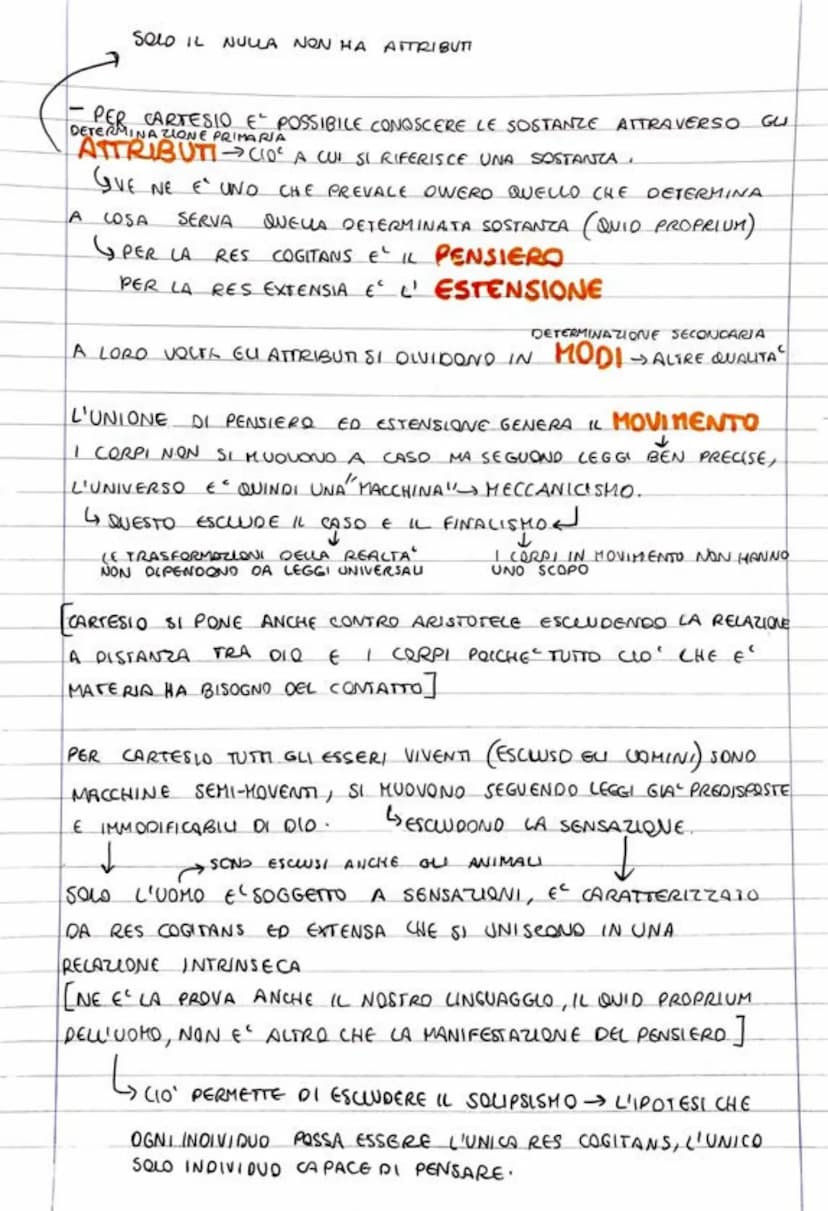 SOLO IL NULLA NON HA ATTRIBUTI
- PER CARTESIO E' POSSIBILE CONOSCERE LE SOSTANZE ATTRAVERSO GLI
DETERMINAZIONE PRIMARIA
ATTRIBUTI → CIO' A CUI SI RIFERISCE UNA SOSTANZA.
↳ VE NE E' UNO CHE PREVALE OVVERO QUELLO CHE DETERMINA
A COSA SERVA QUELLA DETERMINATA SOSTANZA (QUID PROPRIUM)
↳ PER LA RES COGITANS E' IL PENSIERO
PER LA RES EXTENSIA E' L' ESTENSIONE
DETERMINAZIONE SECONDARIA
A LORO VOLTA GLI ATTRIBUTI SI DIVIDONO IN MODI → ALTRE QUALITA'
L'UNIONE DI PENSIERO ED ESTENSIONE GENERA IL MOVIMENTO
I CORPI NON SI MUOVONO A CASO MA SEGUONO LEGGI BEN PRECISE,
L'UNIVERSO E' QUINDI UNA "MACCHINA" → MECCANICISMO.
↳ QUESTO ESCLUDE IL CASO E IL FINALISMO ↲
LE TRASFORMAZIONI DELLA REALTA' I CORPI IN MOVIMENTO NON HANNO
NON DIPENDONO DA LEGGI UNIVERSALI UNO SCOPO
[CARTESIO SI PONE ANCHE CONTRO ARISTOTELE ESCLUDENDO LA RELAZIONE
A DISTANZA TRA DIO E I CORPI POICHE' TUTTO CIO' CHE E'
MATERIA HA BISOGNO DEL CONTATTO]
PER CARTESIO TUTTI GLI ESSERI VIVENTI (ESCLUSO GLI UOMINI) SONO
MACCHINE SEMI-MOVENTI, SI MUOVONO SEGUENDO LEGGI GIA' PREDISPOSTE
E IMMODIFICABILI DI DIO. ↳ ESCLUDONO LA SENSAZIONE.
→ SONO ESCLUSI ANCHE GLI ANIMALI
SOLO L'UOMO E' SOGGETTO A SENSAZIONI, E' CARATTERIZZATO
DA RES COGITANS ED EXTENSA CHE SI UNISCONO IN UNA
RELAZIONE INTRINSECA
[NE E' LA PROVA ANCHE IL NOSTRO LINGUAGGIO, IL QUID PROPRIUM
DELL'UOMO, NON E' ALTRO CHE LA MANIFESTAZIONE DEL PENSIERO]
↳ CIO' PERMETTE DI ESCLUDERE IL SOLIPSISMO → L'IPOTESI CHE
OGNI INDIVIDUO POSSA ESSERE L'UNICA RES COGITANS, L'UNICO
SOLO INDIVIDUO CAPACE DI PENSARE.